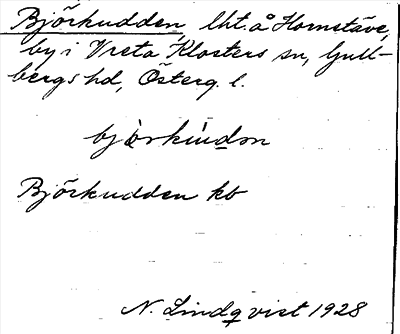 Björkudden, lht. å Hornstäve,
by i Vreta Klosters sn, Gull-
bergs hd, Österg. l.
Björkudden kb
N. Lindqvist 1928